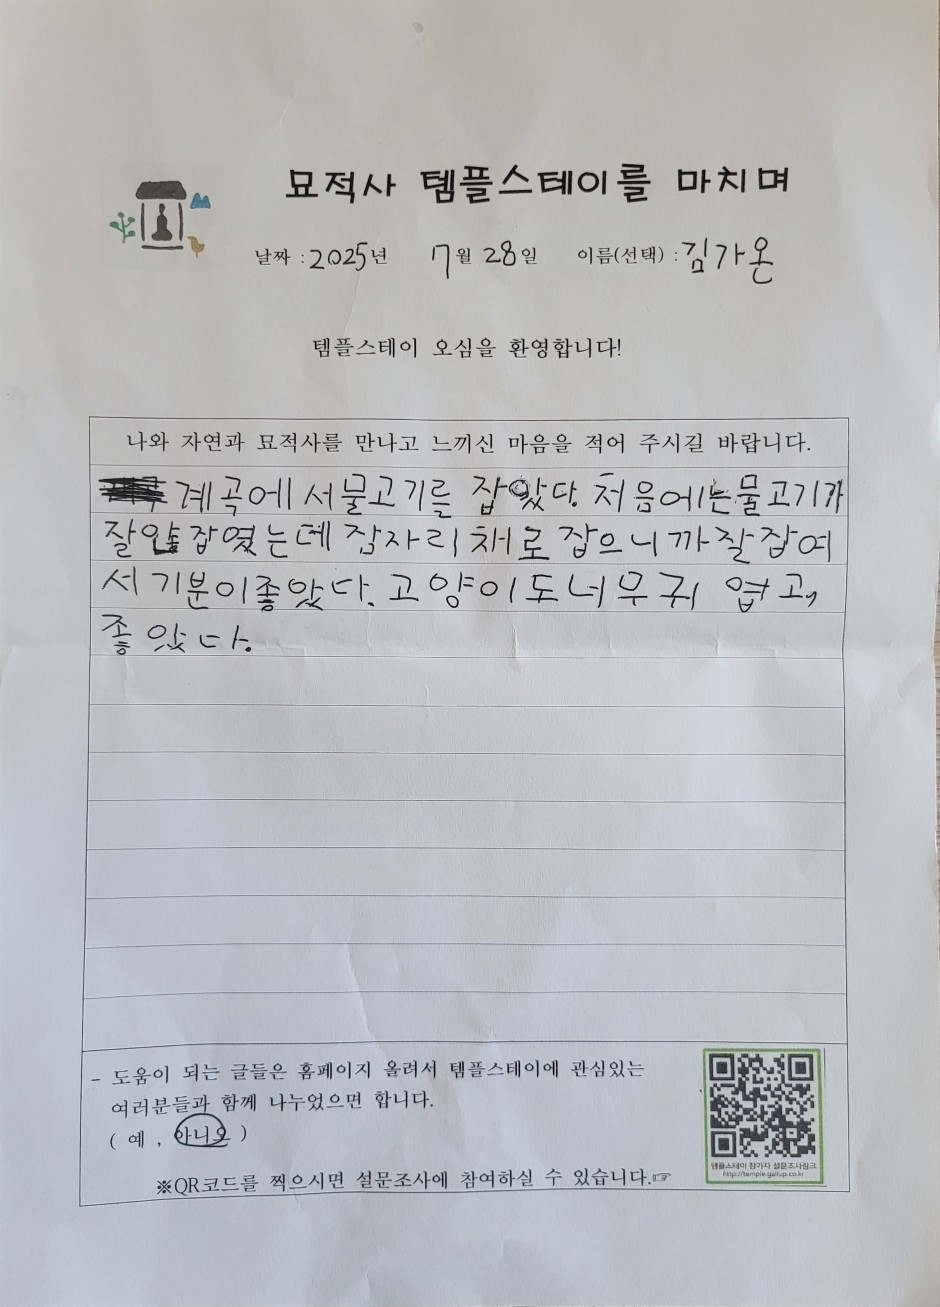 묘적사 템플스테이를 마치며
날짜 : 2025년 7월 28일 이름(선택) : 김가온
템플스테이 오심을 환영합니다!
나와 자연과 묘적사를 만나고 느끼신 마음을 적어 주시길 바랍니다.
계곡에서 물고기를 잡았다. 처음에는 물고기가
잘 안 잡혔는데 잠자리 채로 잡으니까 잘 잡여
서 기분이 좋았다. 고양이도 너무 귀엽고,
좋았다.
- 도움이 되는 글들은 홈페이지 올려서 템플스테이에 관심있는
여러분들과 함께 나누었으면 합니다.
( 예 , 아니오 )
템플스테이 참가자 설문조사링크
http://temple.gallup.co.kr
※QR코드를 찍으시면 설문조사에 참여하실 수 있습니다.☞